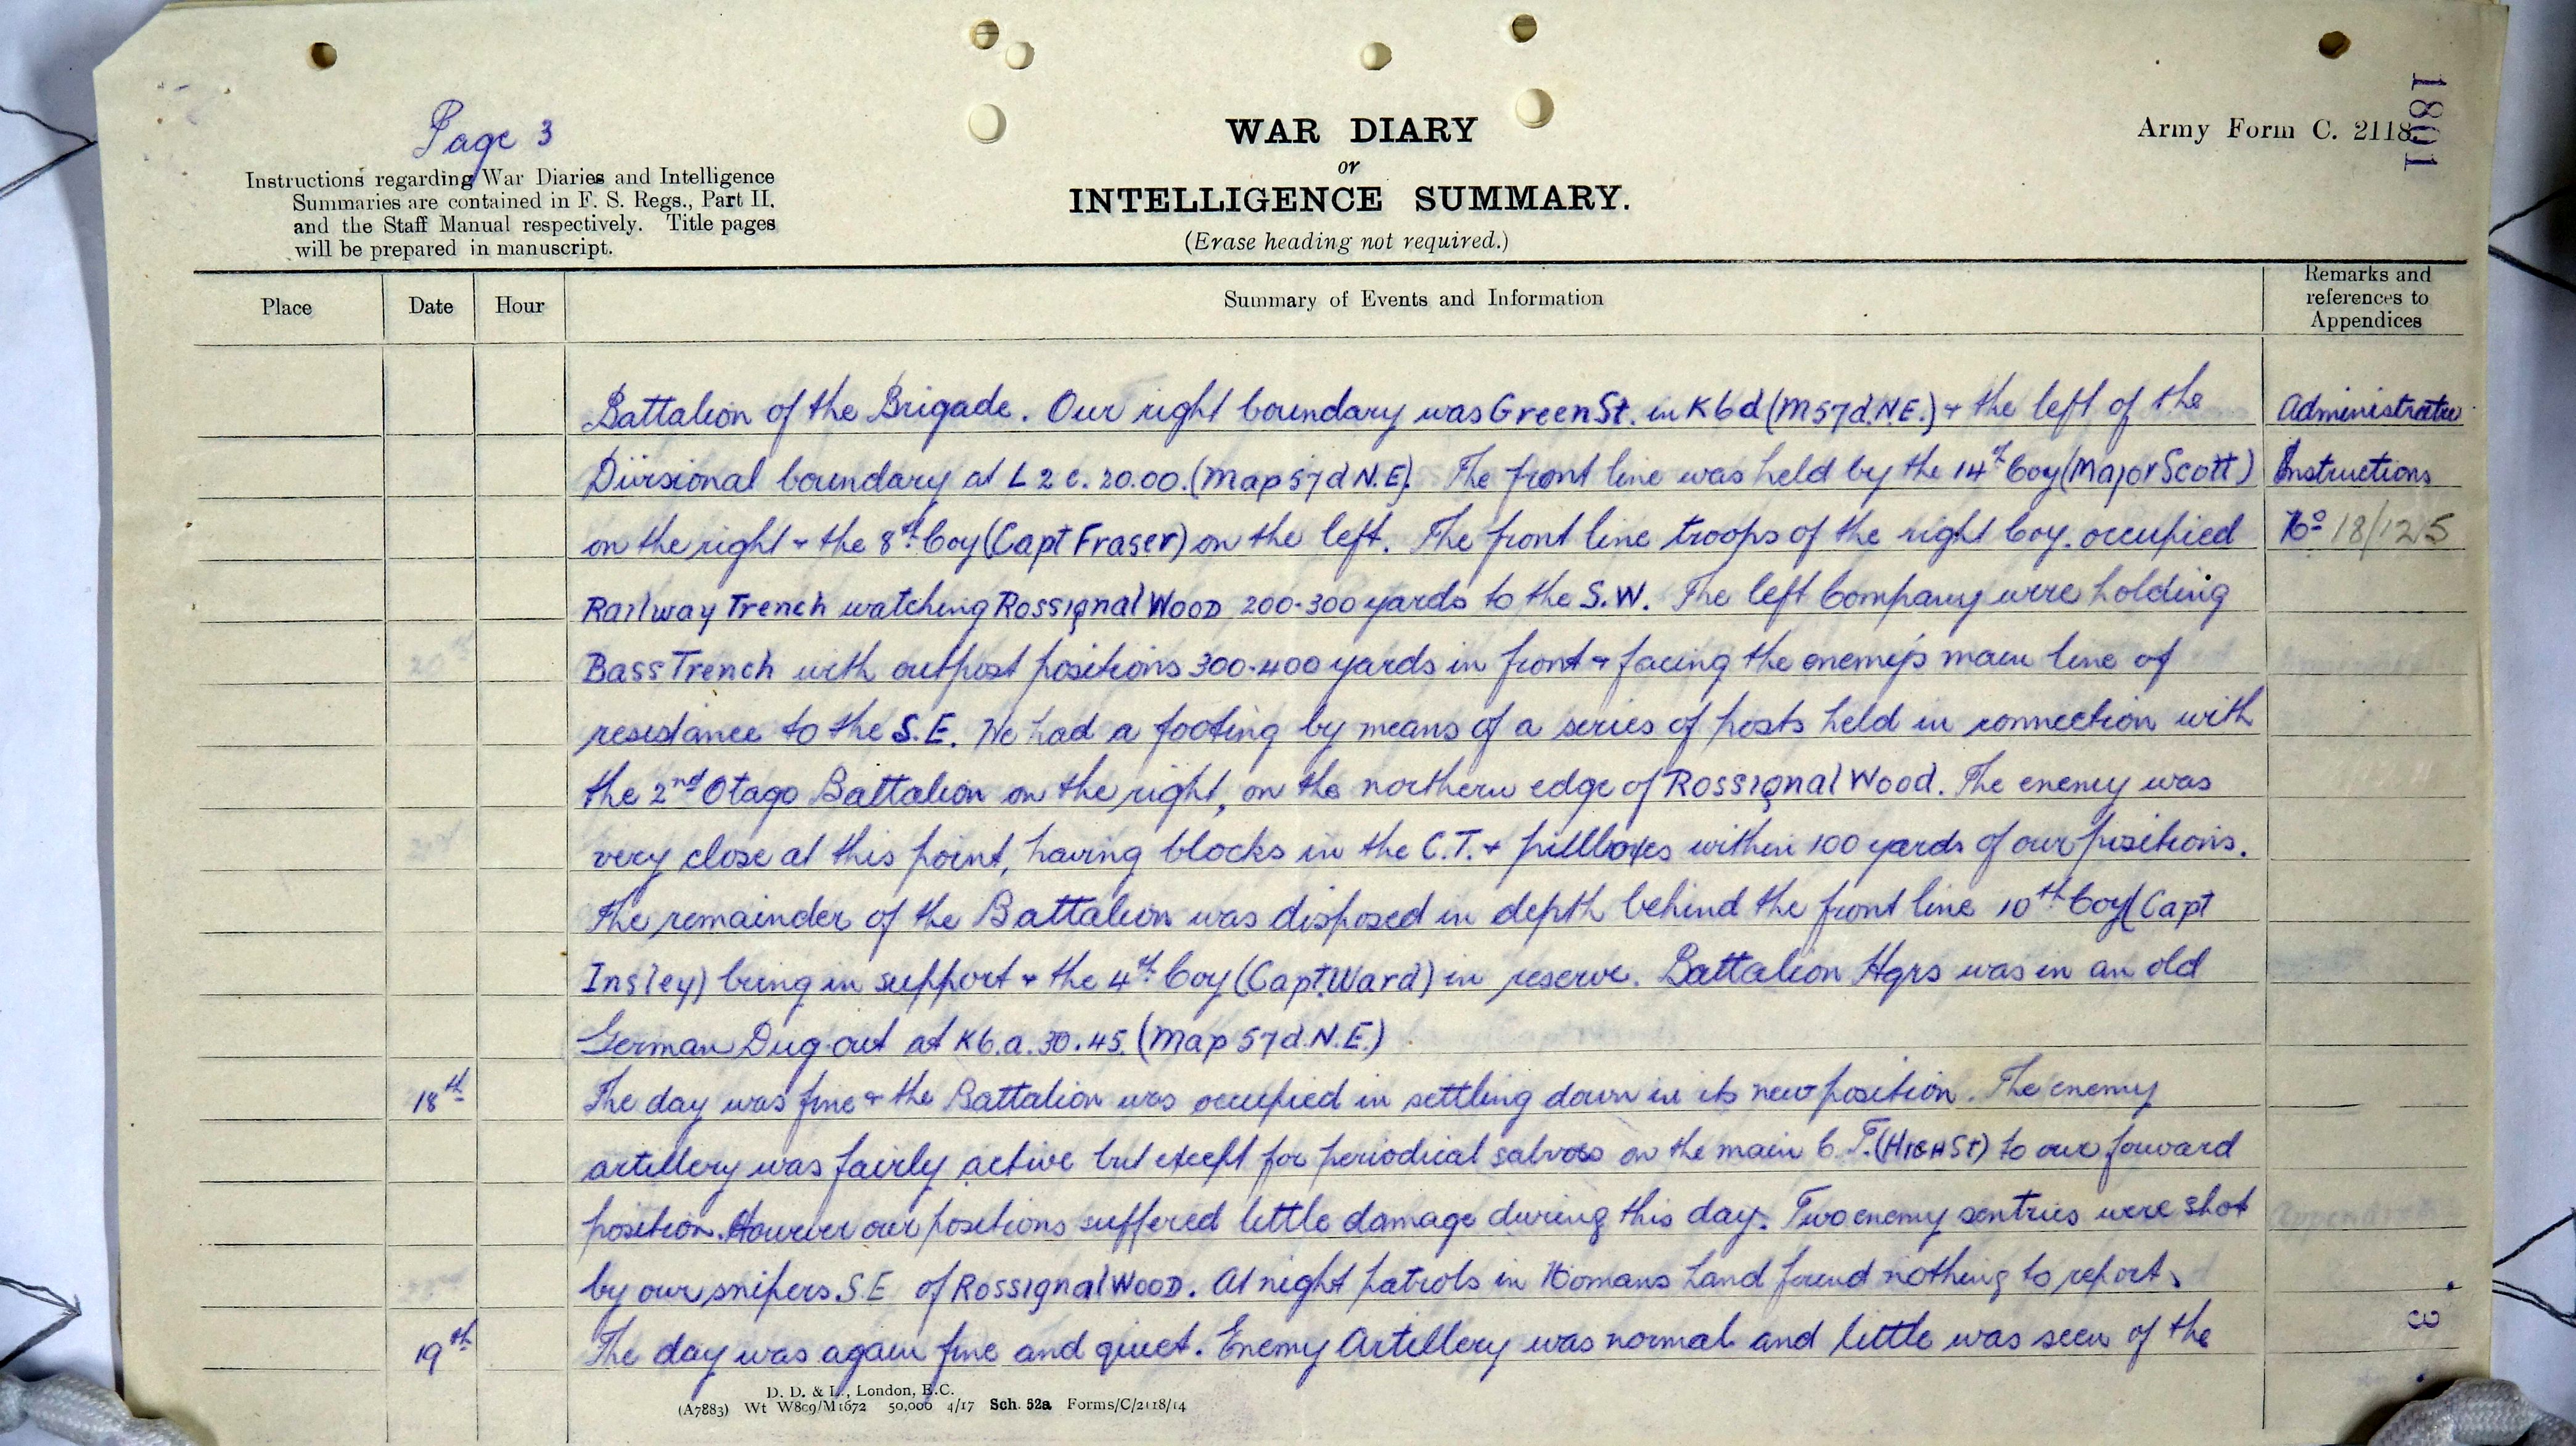 Page 3
1801
Army Form C. 2118.
Instructions regarding War Diaries and Intelligence
Summaries are contained in F. S. Regs., Part II.
and the Staff Manual respectively. Title pages
will be prepared in manuscript.
WAR DIARY
or
INTELLIGENCE SUMMARY.
(Erase heading not required.)
Place Date Hour Summary of Events and Information Remarks and references to Appendices
Battalion of the Brigade. Our right boundary was Green St. in K6d (M57d.N.E.) + the left of the Administrative
Divisional boundary at L 2 c. 20.00. (Map 57d N.E). The front line was held by the 14th Coy (Major Scott) Instructions
on the right + the 8th Coy (Capt Fraser) on the left. The front line troops of the right Coy. occupied No 18/125
Railway Trench watching Rossignal Wood 200-300 yards to the S.W. The left Company were holding
Bass Trench with outpost positions 300-400 yards in front + facing the enemy's main line of
resistance to the S.E. We had a footing by means of a series of posts held in connection with
the 2nd Otago Battalion on the right, on the northern edge of Rossignal Wood. The enemy was
very close at this point, having blocks in the C.T. + pillboxes within 100 yards of our positions.
The remainder of the Battalion was disposed in depth behind the front line 10th Coy (Capt
Insley) being in support + the 4th Coy (Capt. Ward) in reserve. Battalion Hqrs was in an old
German Dug-out at K6.a.30.45. (Map 57d.N.E.)
18th The day was fine + the Battalion was occupied in settling down in its new position. The enemy
artillery was fairly active but except for periodical salvoes on the main C.T. (HIGH St) to our forward
position. However our positions suffered little damage during this day. Two enemy sentries were shot
by our snipers S.E of Rossignal Wood. At night patrols in Nomans Land found nothing to report.
19th The day was again fine and quiet. Enemy Artillery was normal and little was seen of the
3
D. D. & L., London, E.C.
(A7883) Wt W809/M1672 50,000 4/17 Sch. 52a Forms/C/2118/14